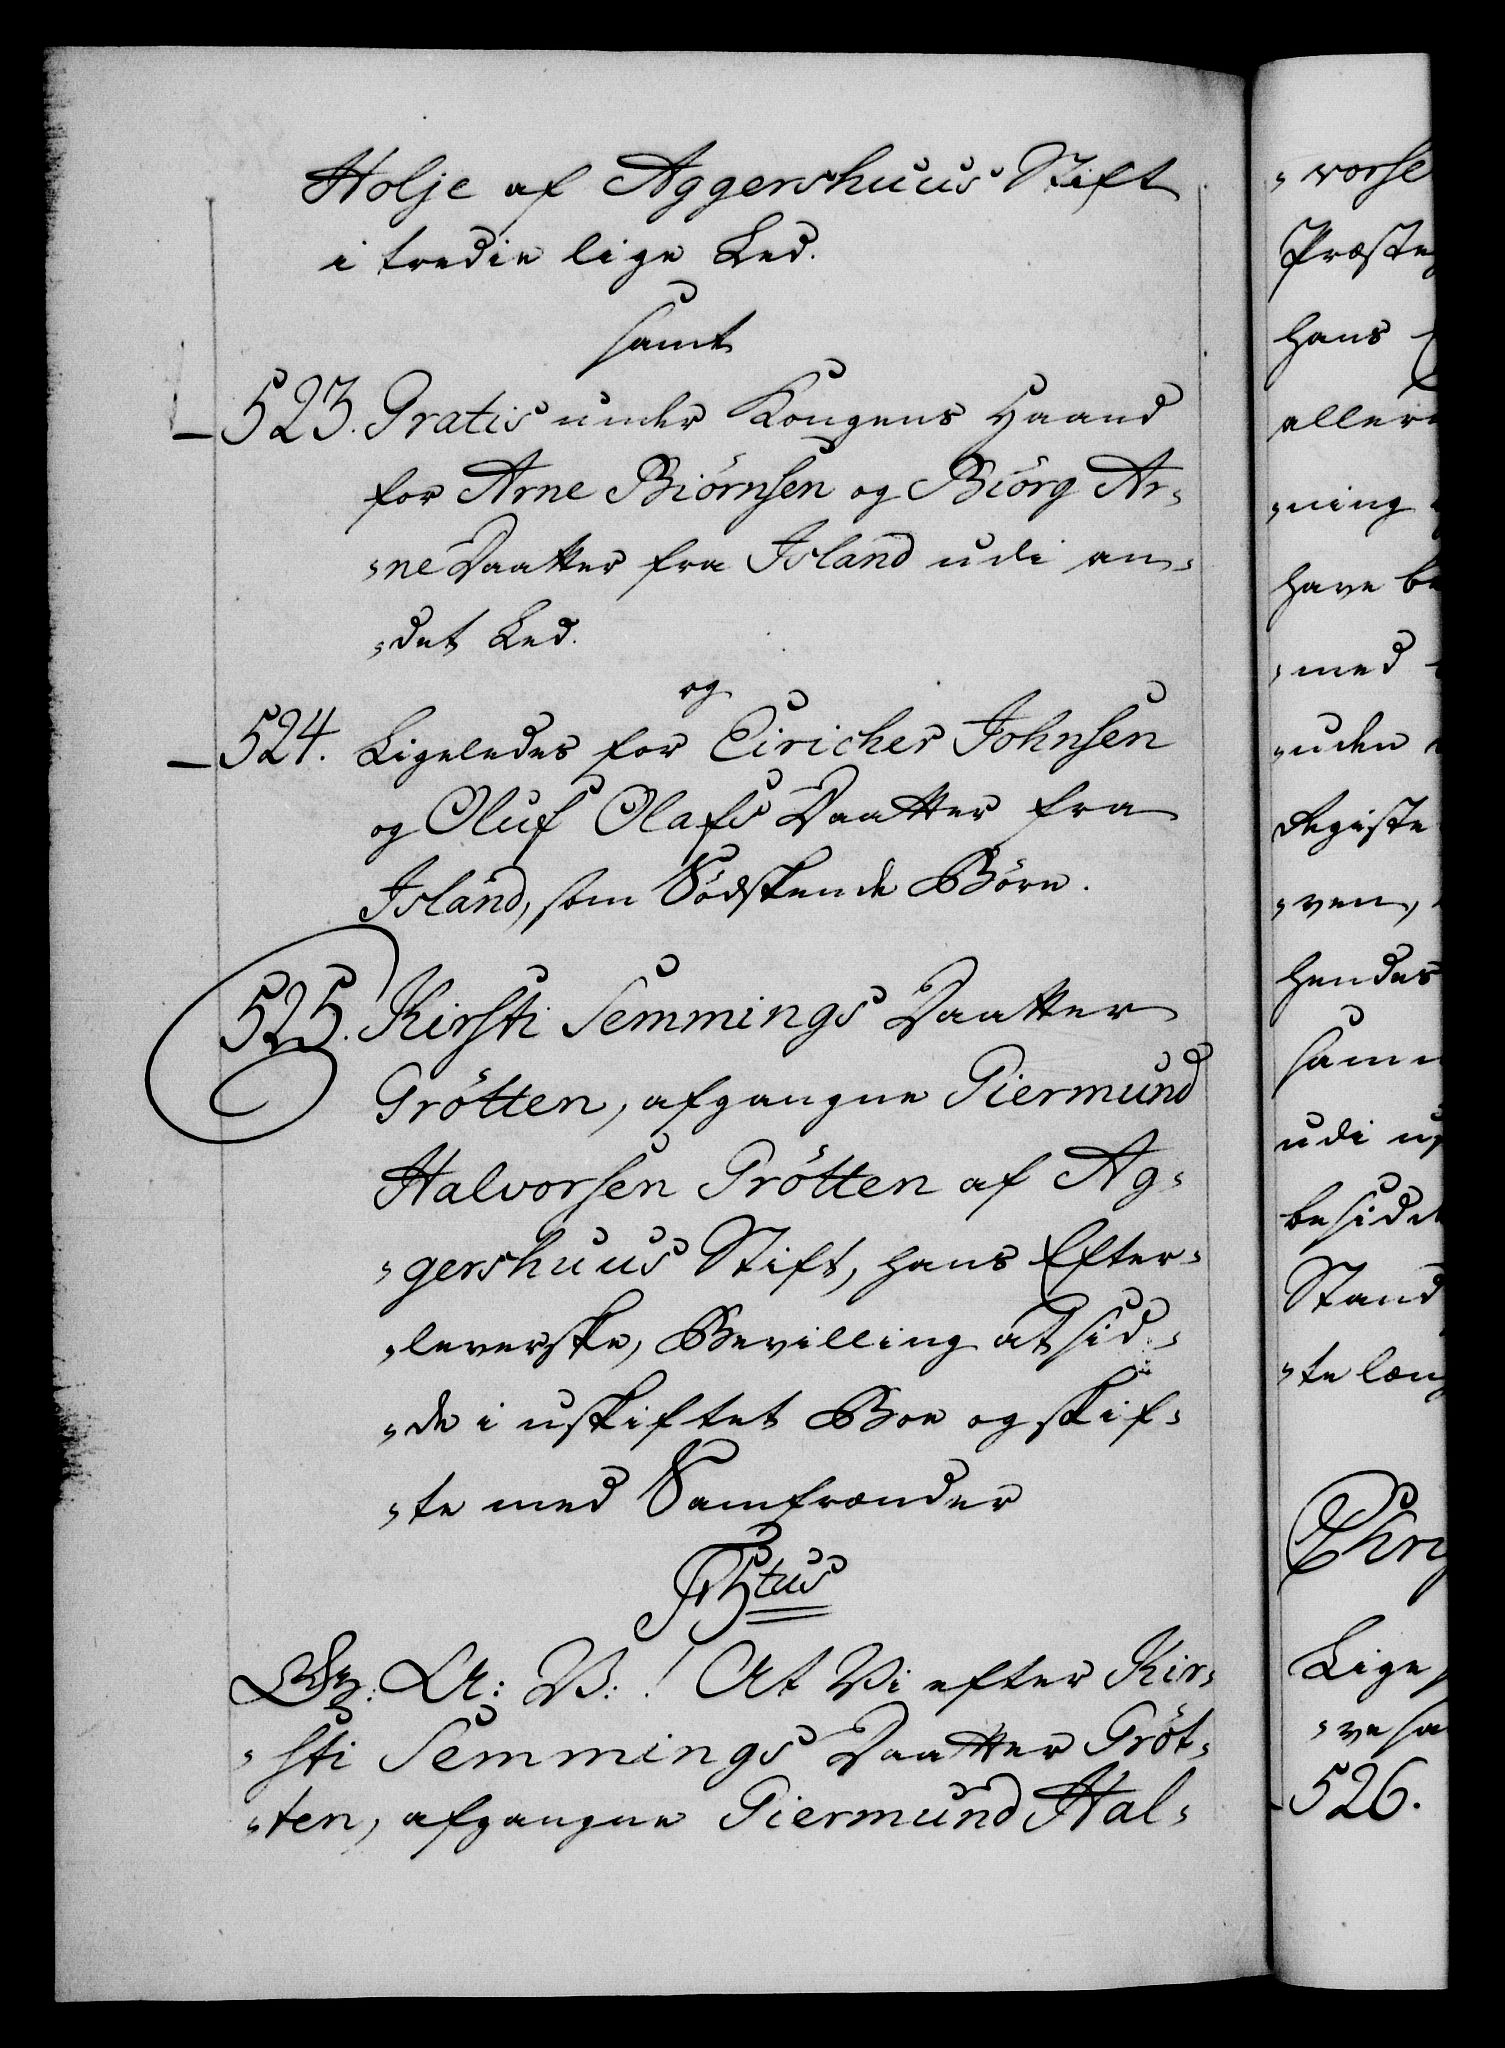 Holje af Aggershuus Stift
i tredie lige Led.
samt
523. Gratis under Kongens Haand
for Arne Biörnsen og Biörg Ar-
-ne Daatter fra Island udi an-
-det Led.
og
524. Ligeledes for Eiricher Johnsen
og Oluf Olafs Daatter fra
Island, som Södskende Börn.
525. Kirsti Semmings Daatter
Grötten, afgangne Giermund
Halvorsen Grötten af Ag-
-gershuus Stift, hans Efter-
-leverske, Bevilling at sid-
-de i uskiftet Boe og skif-
-te med Samfrænder
G: A: V: ! At Vi efter Kir-
-sti Semmings Daatter Gröt-
-ten, afgangne Giermund Hal-
-vorse
Præste
hans
aller
-ning
have be
-med
-uden
Registe
-ven,
hendes
sam
udi
besidde
Stand
-te læng
Lige
-ve sa
526.